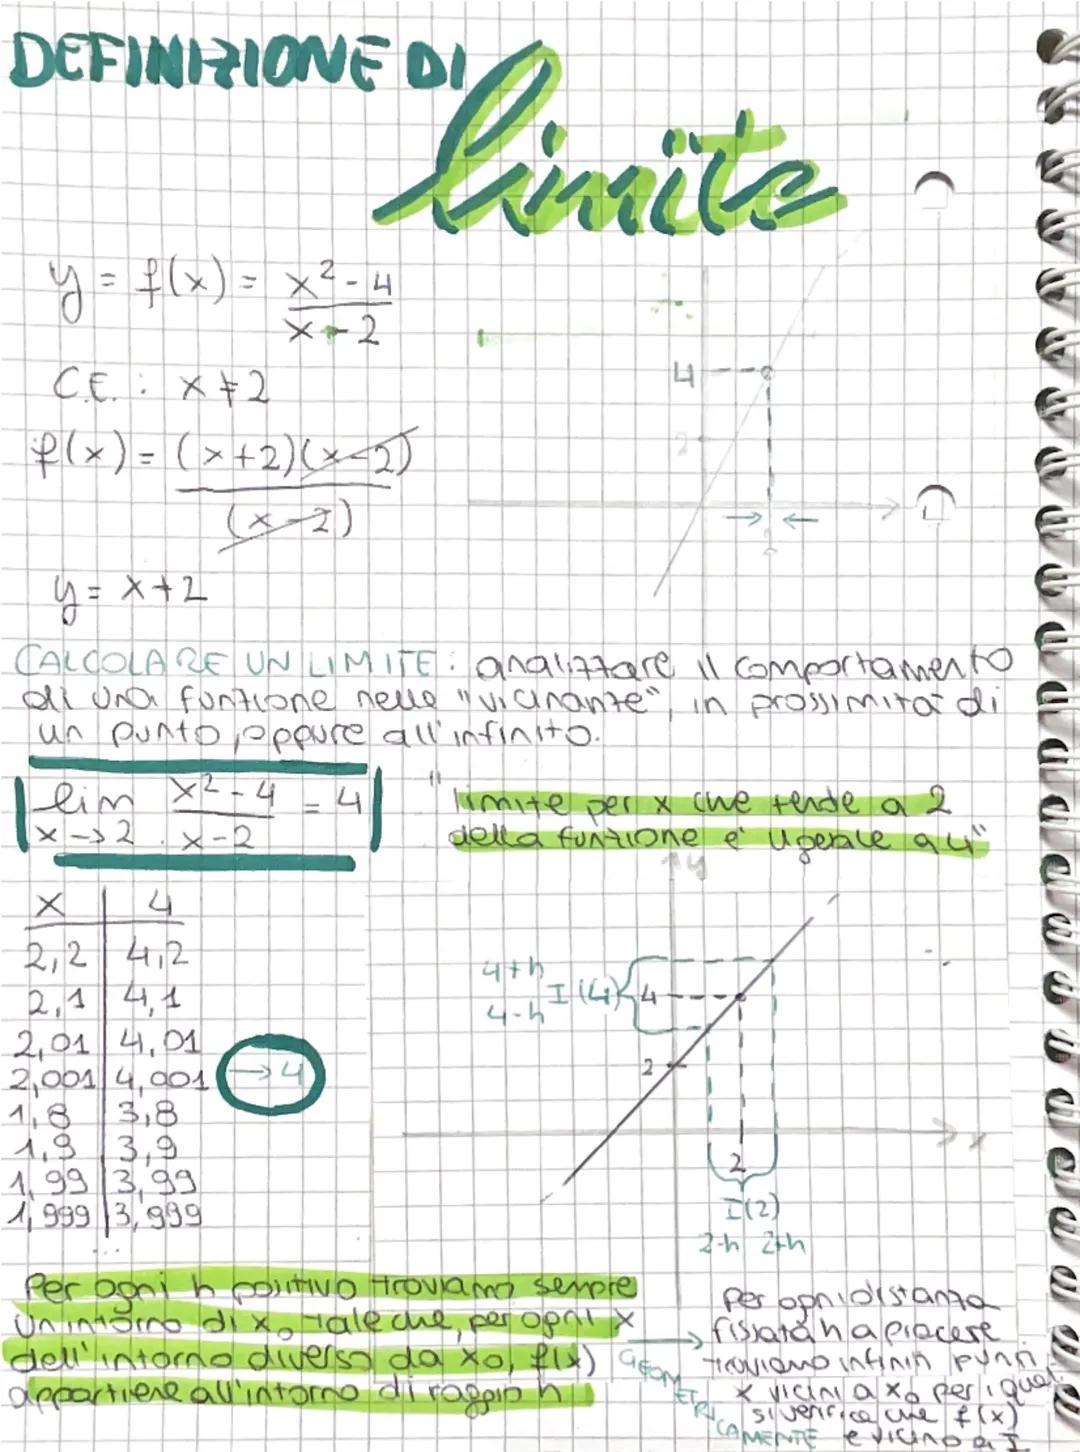 DEFINIZIONE DI
limite
y = f(x) = x² - 4 / x - 2
C.E. : x ≠ 2
f(x) = (x+2)(x-2) / (x-2)
y = x+2
4
2
2
CALCOLARE UN LIMITE: analizzare il comportamento
di una funzione nelle "vicinanze", in prossimità di
un punto, oppure all'infinito.
lim x→2 x² - 4 / x - 2 = 4
"limite per x che tende a 2
della funzione è uguale a 4"
x | 4
2,2 | 4,2
2,1 | 4,1
2,01 | 4,01
2,001 | 4,001 → 4
1,8 | 3,8
1,9 | 3,9
1,99 | 3,99
1,999 | 3,999
...
y
4+h
4-h
I(4)
4
2
x
2
I(2)
2-h 2+h
Per ogni h positivo troviamo sempre
un intorno di x₀ tale che, per ogni x
dell'intorno diverso da x₀, f(x)
appartiene all'intorno di raggio h
GEOMETRICAMENTE
per ogni distanza
fissata h a piacere
troviamo infiniti punti
x vicini a x₀ per i quali
si verifica che f(x)
è vicino a